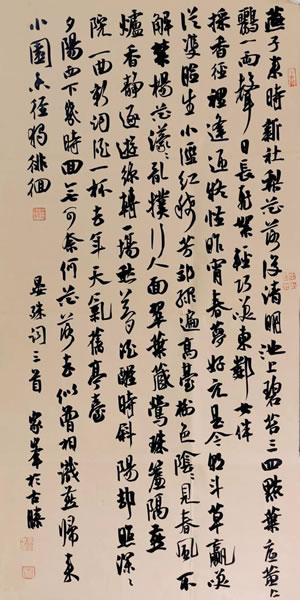 燕子來時新社梨花落後清明池上碧苔三四點葉底黄
鸝一兩聲日長飛絮輕巧笑東鄰女伴
採香徑裡逢迎疑怪昨宵春夢好元是今朝鬥草贏笑
從雙臉生小徑紅稀芳郊綠遍高臺樹色陰陰見春風不
解禁楊花濛濛亂撲行人面翠葉藏鶯珠簾隔燕
爐香靜逐遊絲轉一場愁夢酒醒時斜陽却照深深
院一曲新詞酒一杯去年天氣舊亭臺
夕陽西下幾時回無可奈何花落去似曾相識燕歸來
小園香徑獨徘徊
晏珠詞三首 家峯於古滕